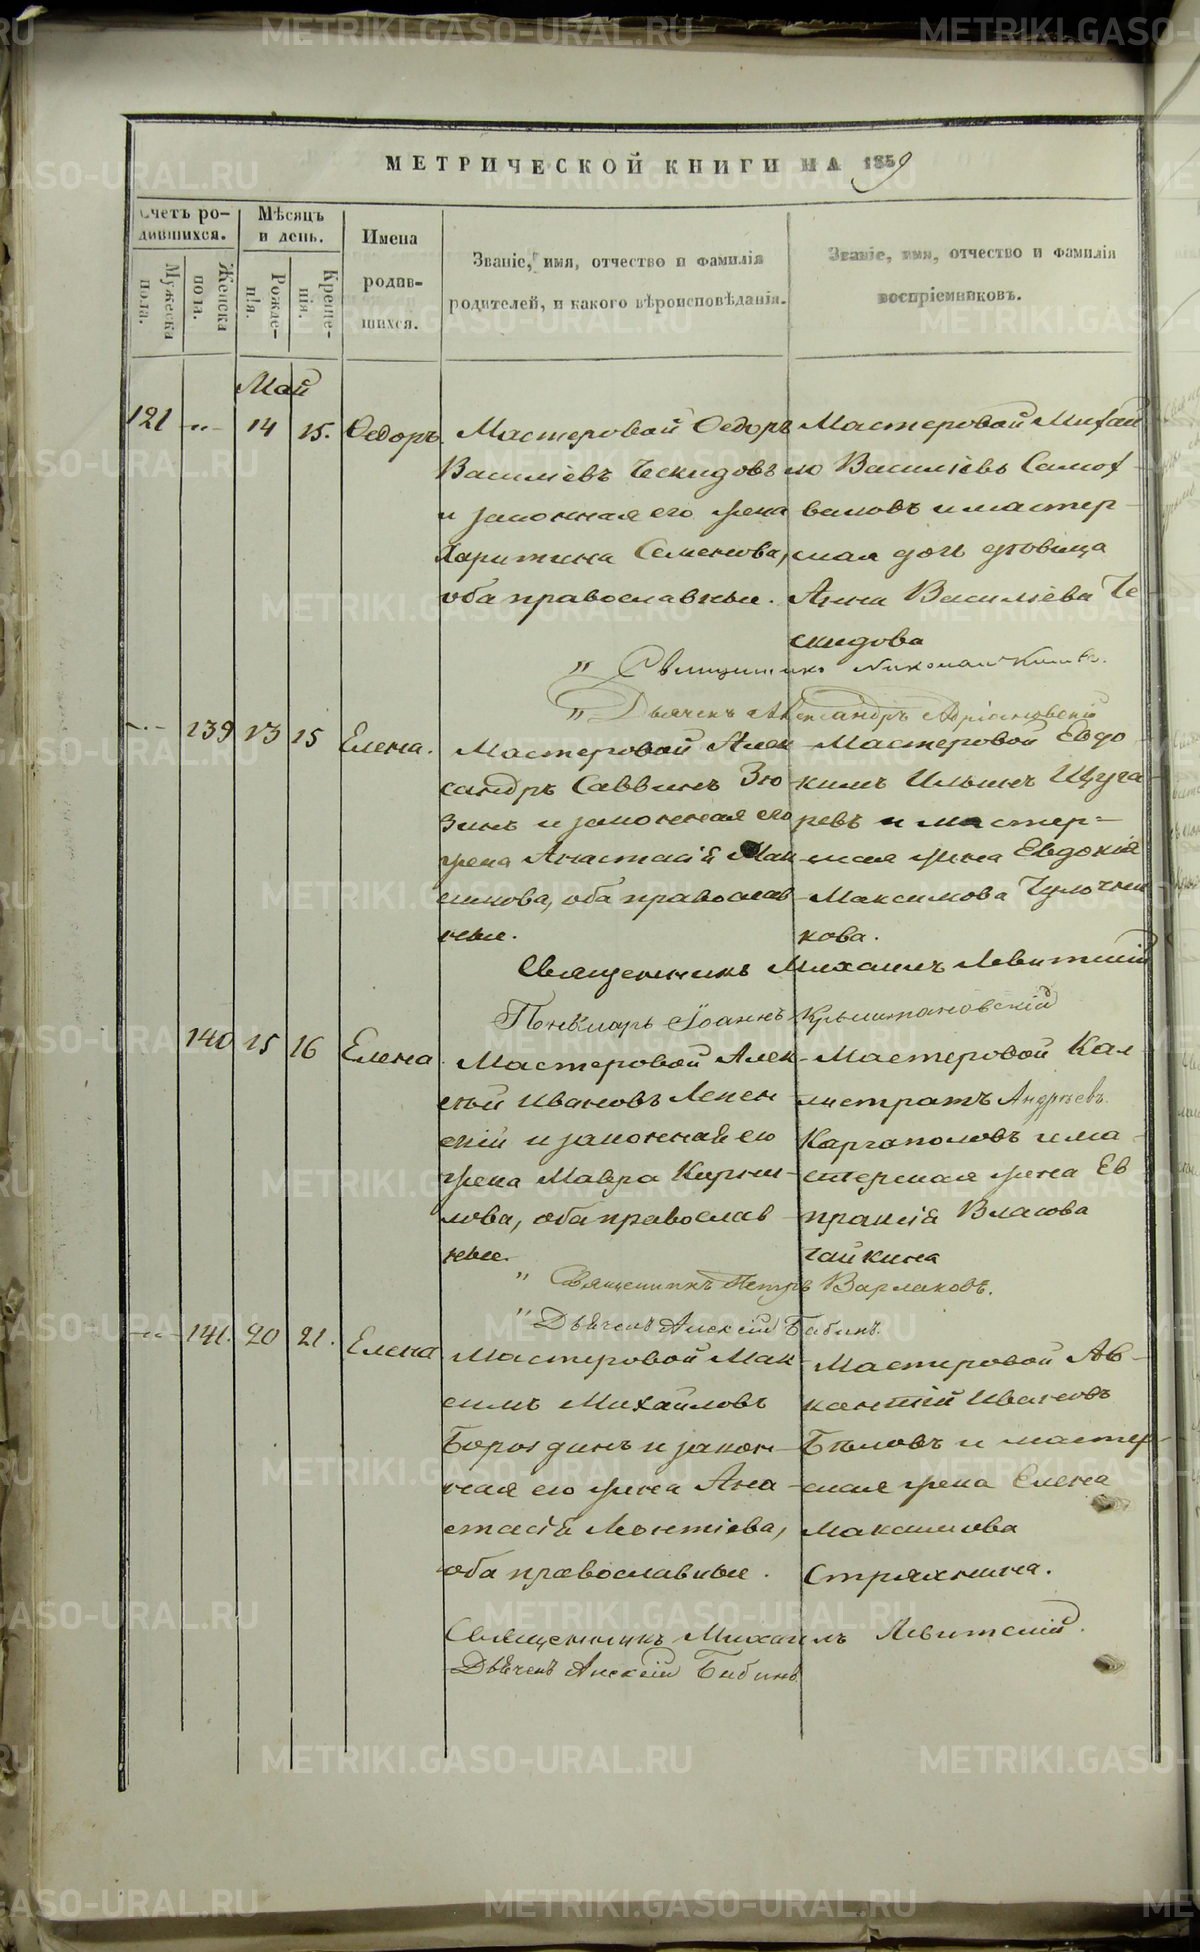 МЕТРИЧЕСКОЙ КНИГИ НА 1859
Счетъ ро-
дившихся.
Мужеска
пола.
Женска
пола.
Мѣсяцъ
и день.
Рожде-
нія.
Креще-
нія.
Имена
родив-
шихся.
Званіе, имя, отчество и фамилія
родителей, и какого вѣроисповѣданія.
Званіе, имя, отчество и фамилія
воспріемниковъ.
Май
121 -"- 14 15. Ѳедоръ.
Мастеровой Ѳедоръ
Василіевъ Ческидовъ
и законная его жена
Харитина Семенова,
оба православные.
Мастеровой Михаи
ло Василіевъ Самох-
валовъ и мастер-
ская дочь дѣвица
Анна Василіева Че-
скидова
" Священникъ Николай
" Дьячекъ Александръ
-"- 139 13 15 Елена.
Мастеровой Алек-
сандръ Саввинъ Зю-
зинъ и законная его
жена Анастасія Мак
симова, оба православ
ные.
Мастеровой Евдо
кимъ Ильинъ Щуга-
ревъ и мастер-
ская жена Евдокія
Максимова Чулочни-
кова.
Священникъ Михаилъ Левитскій
Пономарь Іоаннъ
140 15 16 Елена.
Мастеровой Алек-
сѣй Ивановъ Лепен
скій и законная его
жена Мавра Кирил-
лова, оба православ
ные.
Мастеровой Кал-
листратъ Андреевъ
Каргаполовъ и ма-
стерская жена Ев
праксія Власова
Чайкина
" Священникъ Петръ Варлаковъ.
" Дьячекъ Алексій Бабинъ.
-"- 141. 20 21. Елена
Мастеровой Мак-
симъ Михайловъ
Бороздинъ и закон-
ная его жена Ана
стасія Леонтіева,
оба православные.
Мастеровой Ав-
ксентій Ивановъ
Бѣловъ и мастер-
ская жена Елена
Максимова
Стряхнина.
Священникъ Михаилъ Левитскій.
Дьячекъ Алексій Бабинъ
METRIKI.GASO-URAL.RU